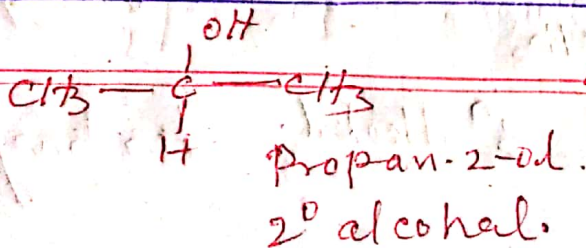 OH
CH3 — C — CH3
H
Propan-2-ol.
2° alcohal.